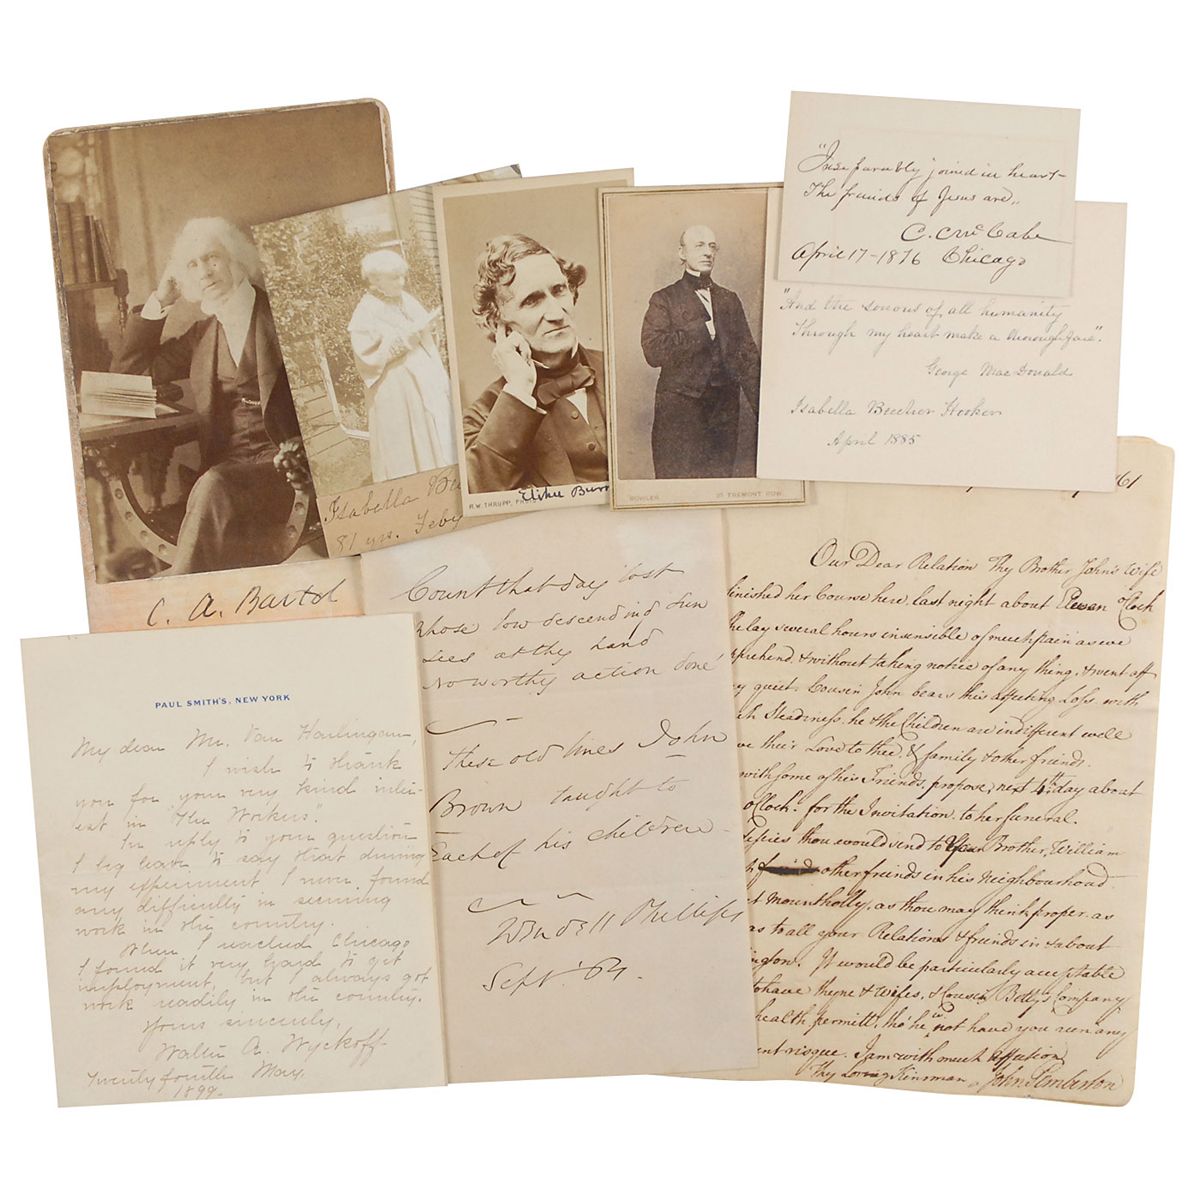 C. A. Bartol
Isabella Be
81 yrs. Feby
R. W. THRUPP, PHO
Elihu Burr
25 TREMONT ROW.
"Inseparably joined in heart–
The friends of Jesus are,,
C. C. McCabe
April 17–1876 Chicago
"And the sorrows of all humanity
Through my heart make a thoroughfare."
George Mac Donald
Isabella Beecher Hooker
April 1885
PAUL SMITH'S, NEW YORK
My dear Mr. Van Harlingan,
I wish to thank
you for your very kind inter-
est in "The Workers".
In reply to your question
I beg leave to say that during
my experiment I never found
any difficulty in securing
work in the country.
When I reached Chicago
I found it very hard to get
employment, but I always got
work readily in the country.
Yours sincerely,
Walter A. Wyckoff
Twenty fourth May.
1899.
Count that day lost
whose low descending sun
sees at thy hand
No worthy action done'
These old lines John
Brown taught to
Each of his children
Wendell Phillips
Sept. '64.
61
Our Dear Relation Thy Brother John's Wife
finished her Course here, last night about Eleven oClock
She lay several hours insensible of much pain as we
pprehend, & without taking notice of any thing, & went off
ry quiet. Cousin John bears this affecting Loss, with
ch Steadiness, he & the Children are indifferent well
ve their Love to thee, & family & other friends.
with some of his Friends, propose, next 4th day about
oClock for the Invitation to her funeral.
desires thou would send to Brother William
other friends in his Neighbourhood
t Mountholly, as thou may think proper, as
as to all your Relations & friends in & about
ington. It would be particularly acceptable
to have thyne & Wifes, & Cousin Betty's Company
health permitt, tho' he w.d not have you run any
ent risque. I am with much affection
Thy Loving Kinsman John Pemberton